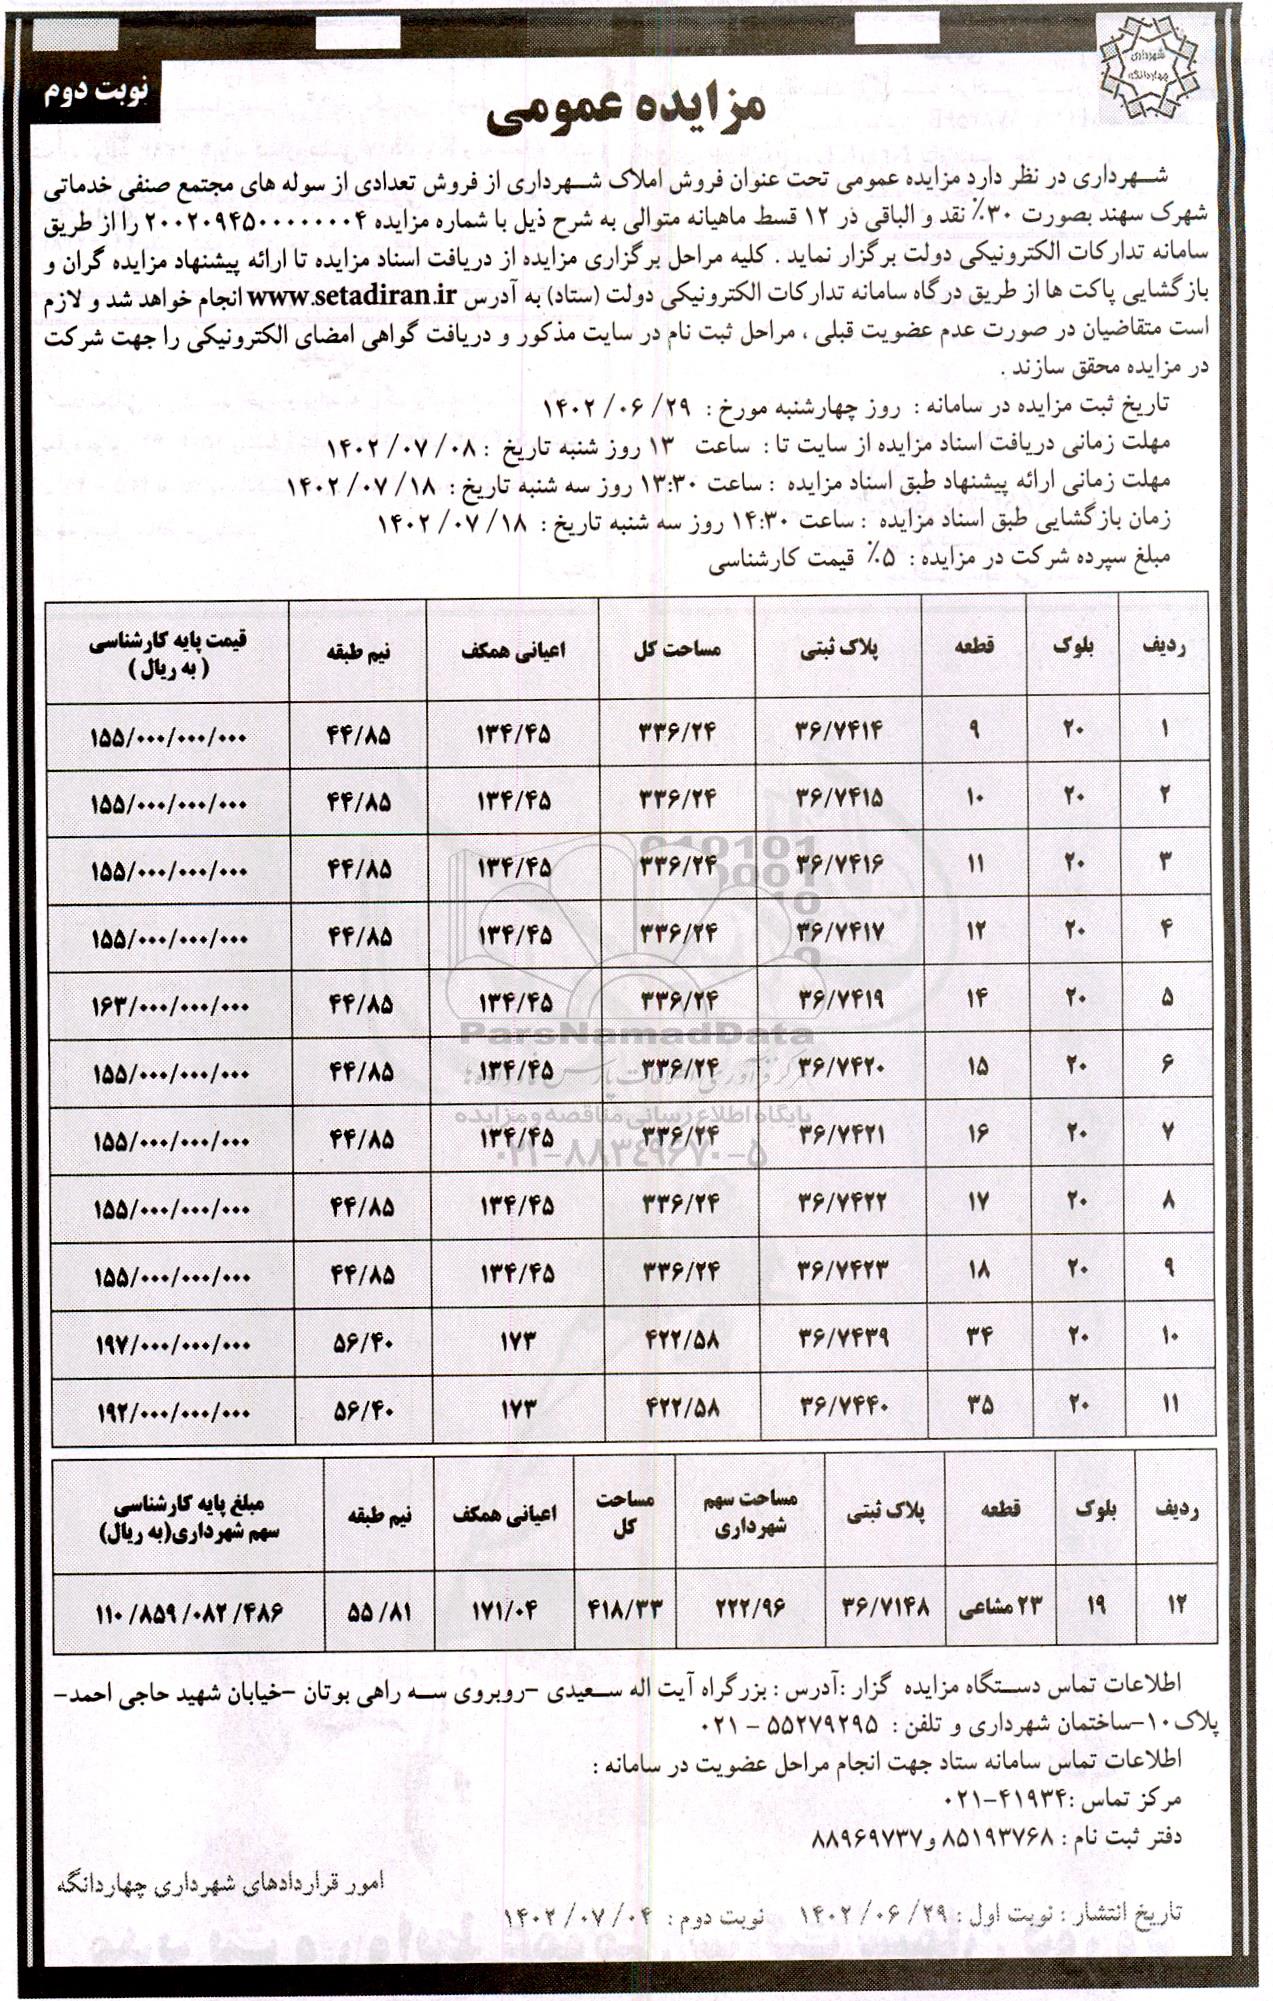 شهرداری چهاردانگه
نوبت دوم
مزایده عمومی
شهرداری در نظر دارد مزایده عمومی تحت عنوان فروش املاک شهرداری از فروش تعدادی از سوله های مجتمع صنفی خدماتی
شهرک سهند بصورت ۳۰٪ نقد و الباقی در ۱۲ قسط ماهیانه متوالی به شرح ذیل با شماره مزایده ۲۰۰۲۰۹۴۵۰۰۰۰۰۰۰۴ را از طریق
سامانه تدارکات الکترونیکی دولت برگزار نماید . کلیه مراحل برگزاری مزایده از دریافت اسناد مزایده تا ارائه پیشنهاد مزایده گران و
بازگشایی پاکت ها از طریق درگاه سامانه تدارکات الکترونیکی دولت (ستاد) به آدرس www.setadiran.ir انجام خواهد شد و لازم
است متقاضیان در صورت عدم عضویت قبلی ، مراحل ثبت نام در سایت مذکور و دریافت گواهی امضای الکترونیکی را جهت شرکت
در مزایده محقق سازند .
تاریخ ثبت مزایده در سامانه : روز چهارشنبه مورخ : ۲۹ /۰۶ /۱۴۰۲
مهلت زمانی دریافت اسناد مزایده از سایت تا : ساعت ۱۳ روز شنبه تاریخ : ۰۸ /۰۷ /۱۴۰۲
مهلت زمانی ارائه پیشنهاد طبق اسناد مزایده : ساعت ۱۳:۳۰ روز سه شنبه تاریخ : ۱۸ /۰۷ /۱۴۰۲
زمان بازگشایی طبق اسناد مزایده : ساعت ۱۴:۳۰ روز سه شنبه تاریخ : ۱۸ /۰۷ /۱۴۰۲
مبلغ سپرده شرکت در مزایده : ۵٪ قیمت کارشناسی
ردیف بلوک قطعه پلاک ثبتی مساحت کل اعیانی همکف نیم طبقه قیمت پایه کارشناسی ( به ریال )
۱ ۲۰ ۹ ۳۶/۷۴۱۴ ۳۳۶/۲۴ ۱۳۴/۴۵ ۴۴/۸۵ ۱۵۵/۰۰۰/۰۰۰/۰۰۰
۲ ۲۰ ۱۰ ۳۶/۷۴۱۵ ۳۳۶/۲۴ ۱۳۴/۴۵ ۴۴/۸۵ ۱۵۵/۰۰۰/۰۰۰/۰۰۰
۳ ۲۰ ۱۱ ۳۶/۷۴۱۶ ۳۳۶/۲۴ ۱۳۴/۴۵ ۴۴/۸۵ ۱۵۵/۰۰۰/۰۰۰/۰۰۰
۴ ۲۰ ۱۲ ۳۶/۷۴۱۷ ۳۳۶/۲۴ ۱۳۴/۴۵ ۴۴/۸۵ ۱۵۵/۰۰۰/۰۰۰/۰۰۰
۵ ۲۰ ۱۴ ۳۶/۷۴۱۹ ۳۳۶/۲۴ ۱۳۴/۴۵ ۴۴/۸۵ ۱۶۳/۰۰۰/۰۰۰/۰۰۰
۶ ۲۰ ۱۵ ۳۶/۷۴۲۰ ۳۳۶/۲۴ ۱۳۴/۴۵ ۴۴/۸۵ ۱۵۵/۰۰۰/۰۰۰/۰۰۰
۷ ۲۰ ۱۶ ۳۶/۷۴۲۱ ۳۳۶/۲۴ ۱۳۴/۴۵ ۴۴/۸۵ ۱۵۵/۰۰۰/۰۰۰/۰۰۰
۸ ۲۰ ۱۷ ۳۶/۷۴۲۲ ۳۳۶/۲۴ ۱۳۴/۴۵ ۴۴/۸۵ ۱۵۵/۰۰۰/۰۰۰/۰۰۰
۹ ۲۰ ۱۸ ۳۶/۷۴۲۳ ۳۳۶/۲۴ ۱۳۴/۴۵ ۴۴/۸۵ ۱۵۵/۰۰۰/۰۰۰/۰۰۰
۱۰ ۲۰ ۳۴ ۳۶/۷۴۳۹ ۴۲۲/۵۸ ۱۷۳ ۵۶/۴۰ ۱۹۷/۰۰۰/۰۰۰/۰۰۰
۱۱ ۲۰ ۳۵ ۳۶/۷۴۴۰ ۴۲۲/۵۸ ۱۷۳ ۵۶/۴۰ ۱۹۲/۰۰۰/۰۰۰/۰۰۰
ParsNamadData
پایگاه اطلاع رسانی مناقصه و مزایده
۰۲۱-۸۸۳۴۹۶۷۰-۵
ردیف بلوک قطعه پلاک ثبتی مساحت سهم شهرداری مساحت کل اعیانی همکف نیم طبقه مبلغ پایه کارشناسی سهم شهرداری(به ریال)
۱۲ ۱۹ ۲۳ مشاعی ۳۶/۷۱۴۸ ۲۲۲/۹۶ ۴۱۸/۳۳ ۱۷۱/۰۴ ۵۵/۸۱ ۱۱۰/۸۵۹/۰۸۲/۴۸۶
اطلاعات تماس دستگاه مزایده گزار :آدرس : بزرگراه آیت اله سعیدی -روبروی سه راهی بوتان -خیابان شهید حاجی احمد-
پلاک۱۰-ساختمان شهرداری و تلفن : ۵۵۲۷۹۲۹۵ - ۰۲۱
اطلاعات تماس سامانه ستاد جهت انجام مراحل عضویت در سامانه :
مرکز تماس :۴۱۹۳۴-۰۲۱
دفتر ثبت نام : ۸۵۱۹۳۷۶۸ و۸۸۹۶۹۷۳۷
امور قراردادهای شهرداری چهاردانگه
تاریخ انتشار : نوبت اول : ۲۹ /۰۶ /۱۴۰۲ نوبت دوم : ۰۴ /۰۷ /۱۴۰۲